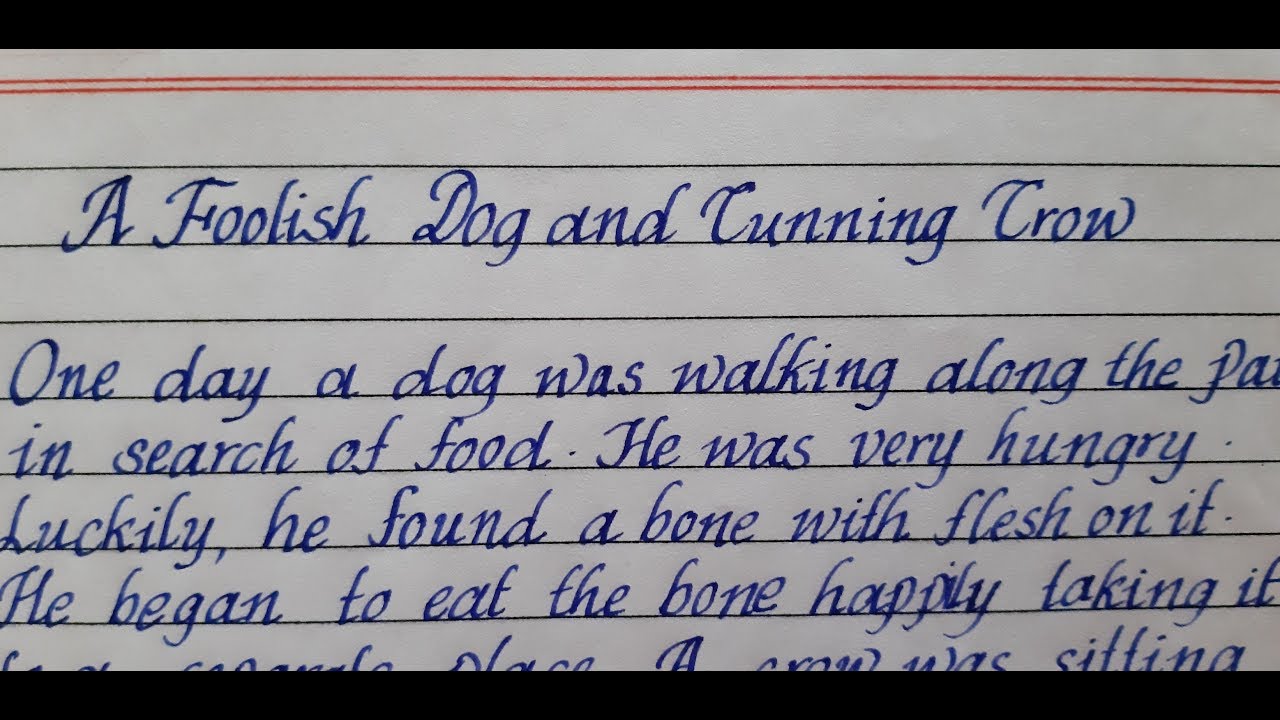 A Foolish Dog and Cunning Crow
One day a dog was walking along the
in search of food. He was very hungry.
Luckily, he found a bone with flesh on it.
He began to eat the bone happily taking it
to a separate place. A crow was sitting